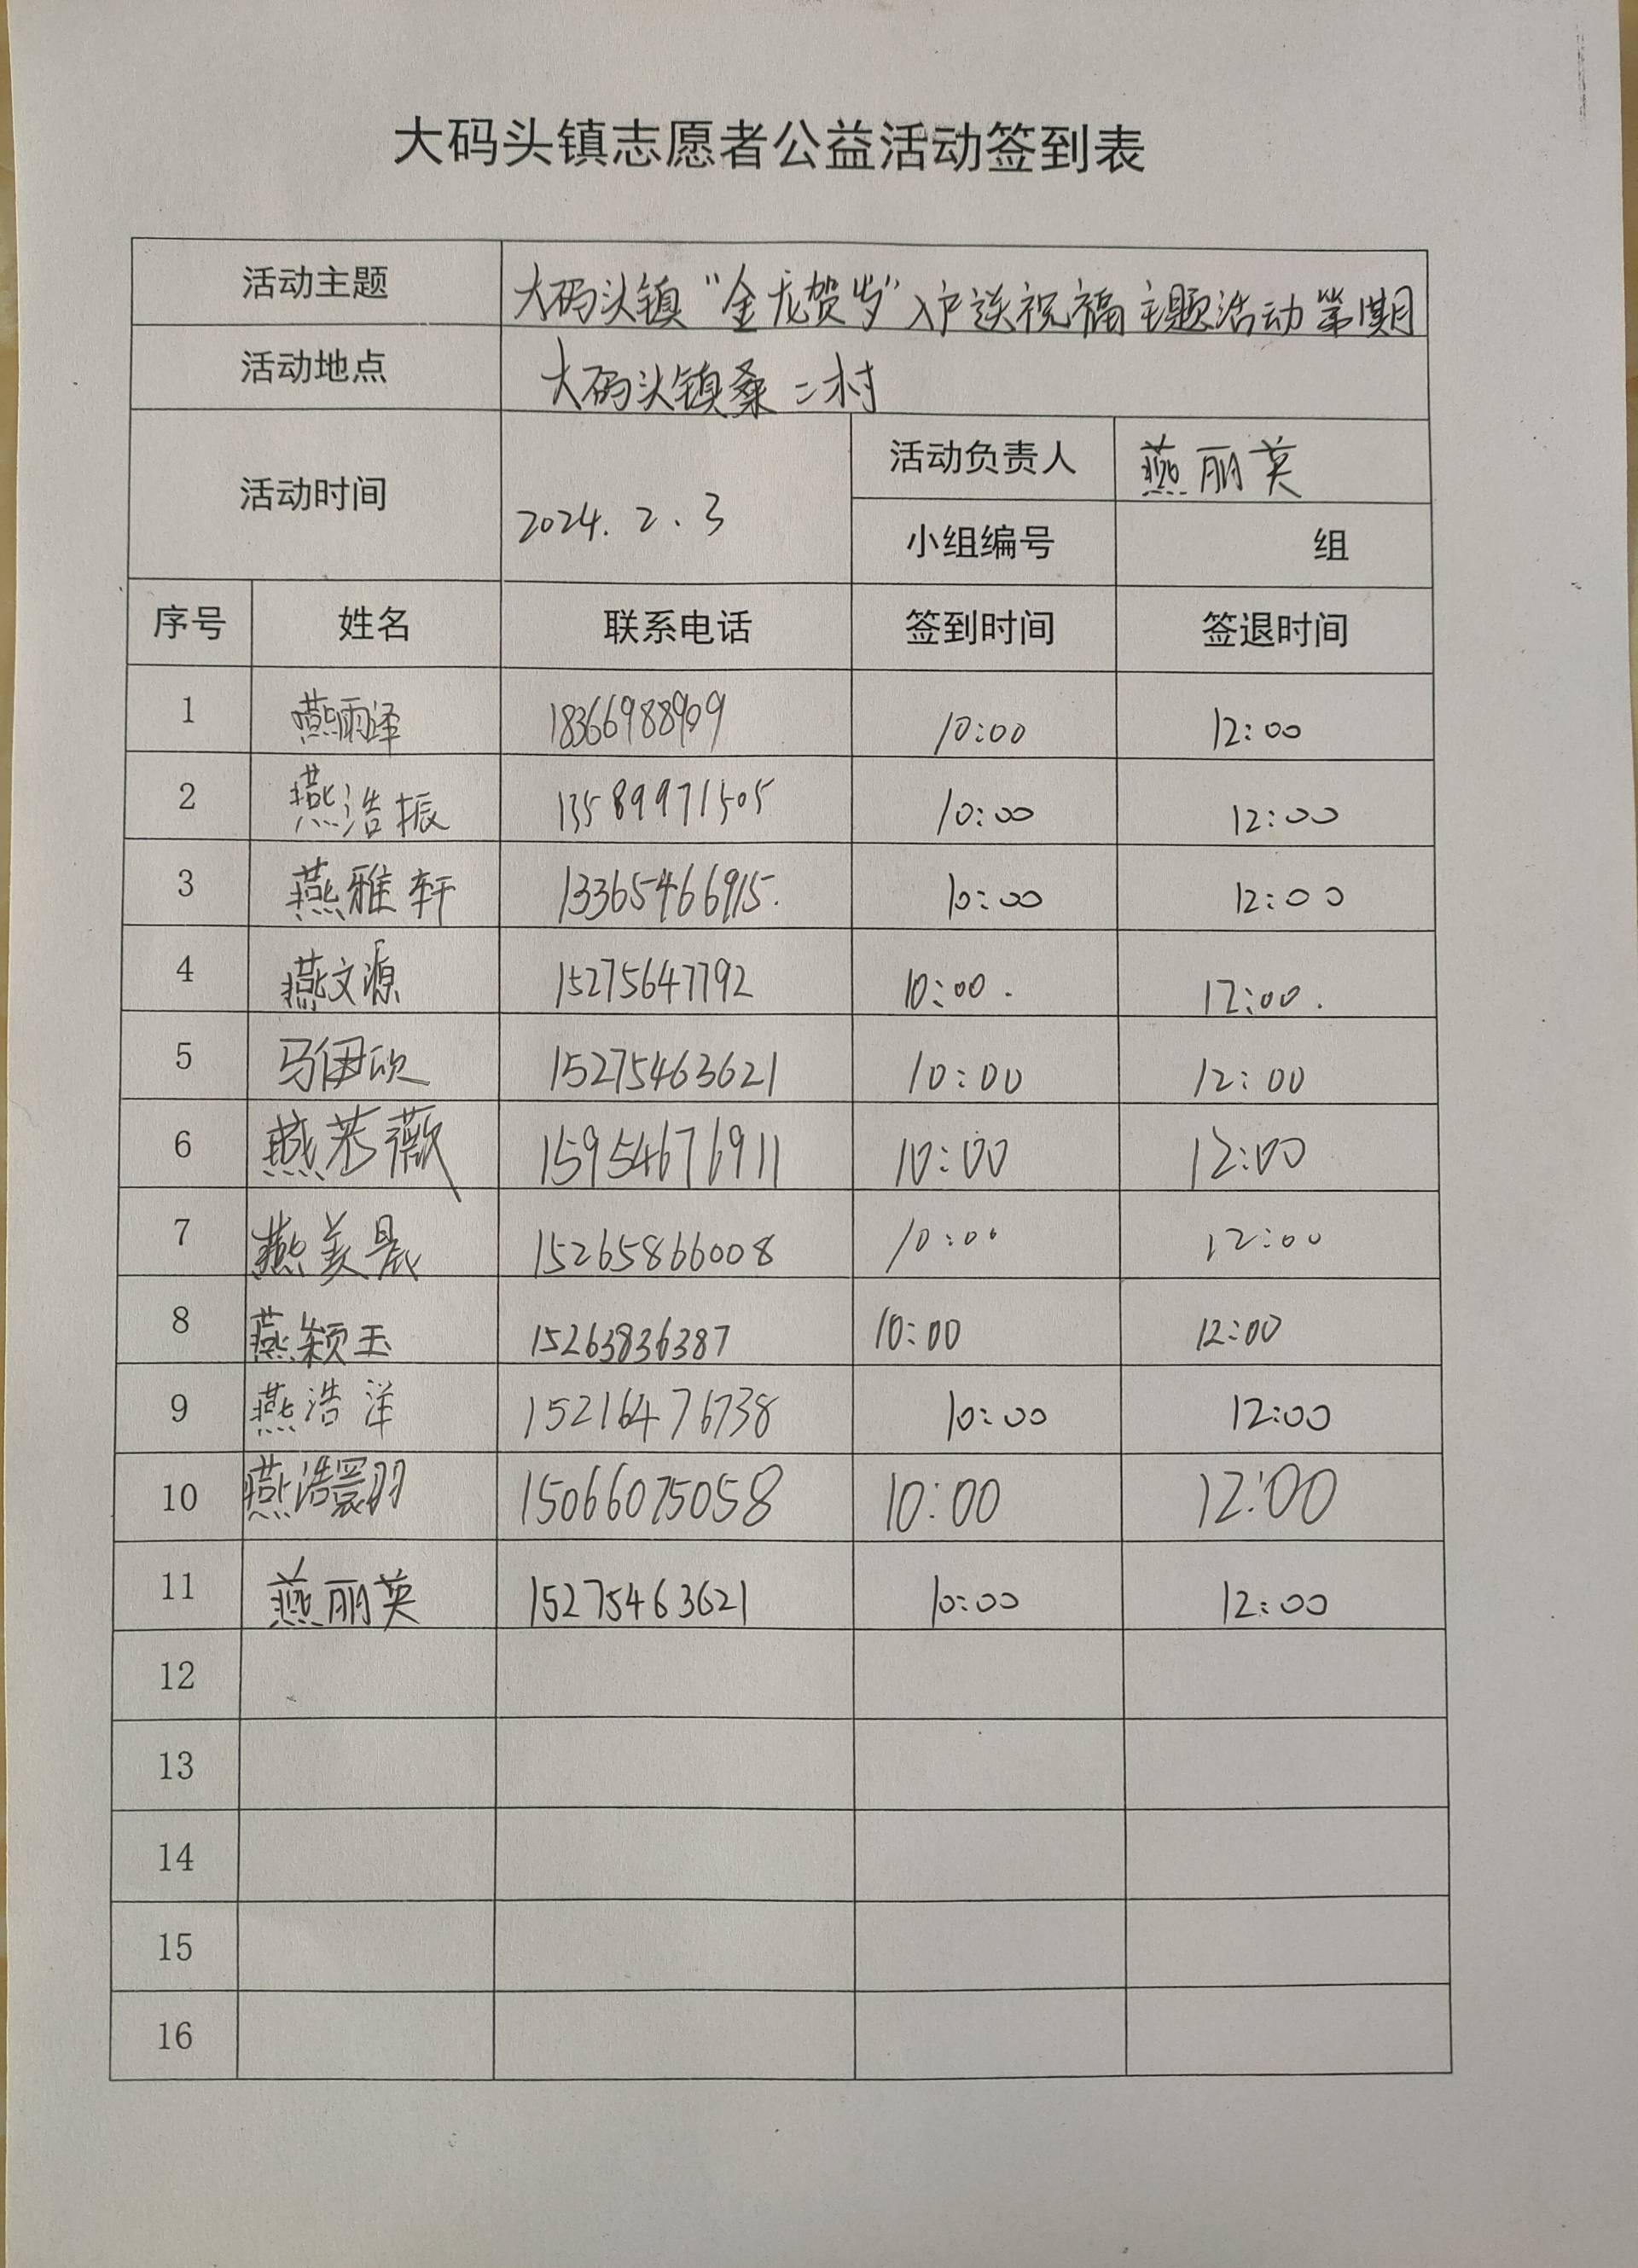 大码头镇志愿者公益活动签到表
活动主题 大码头镇“金龙贺岁”入户送祝福主题活动第1期
活动地点 大码头镇桑二村
活动时间 2024.2.3 活动负责人 燕丽英
小组编号 组
序号 姓名 联系电话 签到时间 签退时间
1 燕雨泽 18366988909 10:00 12:00
2 燕浩振 13589971505 10:00 12:00
3 燕雅轩 13365466915. 10:00 12:00
4 燕文源 15275647792 10:00. 12:00.
5 马伊欣 15275463621 10:00 12:00
6 燕若薇 15954676911 10:00 12:00
7 燕美晨 15265866008 10:00 12:00
8 燕颖玉 15263836387 10:00 12:00
9 燕浩洋 15216476738 10:00 12:00
10 燕浩 15066075058 10:00 12:00
11 燕丽英 15275463621 10:00 12:00
12
13
14
15
16